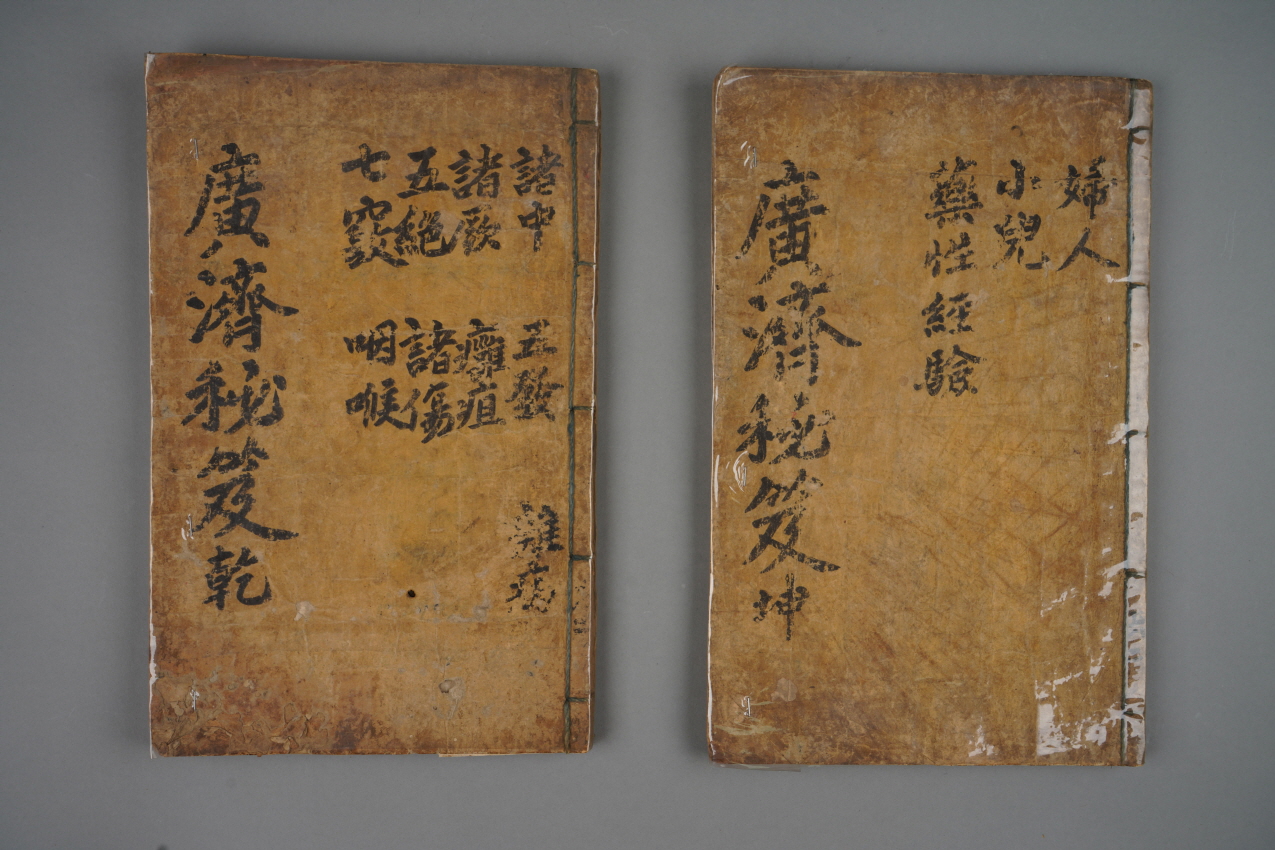 諸中 五發 雜病
諸厥 癰疽
五絶 諸傷
七竅 咽喉
廣濟秘笈 乾
婦人
小兒
藥性 經驗
廣濟秘笈 坤